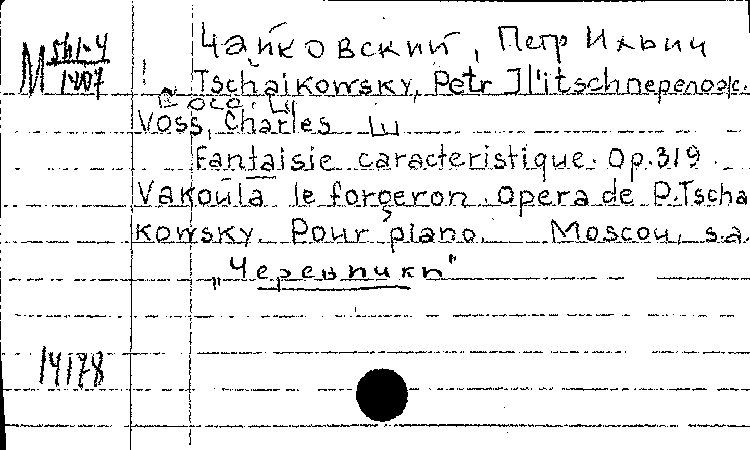 M 561-4
1407
Чайковский, Петр Ильич
Tschaikowsky, Petr Il'itsch перелож.
Voss, Charles
Fantaisie caracteristique. Op. 319.
Vakoula le forgeron. Opera de P. Tscha
kowsky. Pour piano. Moscou, s.a.
„Черевички"
14178